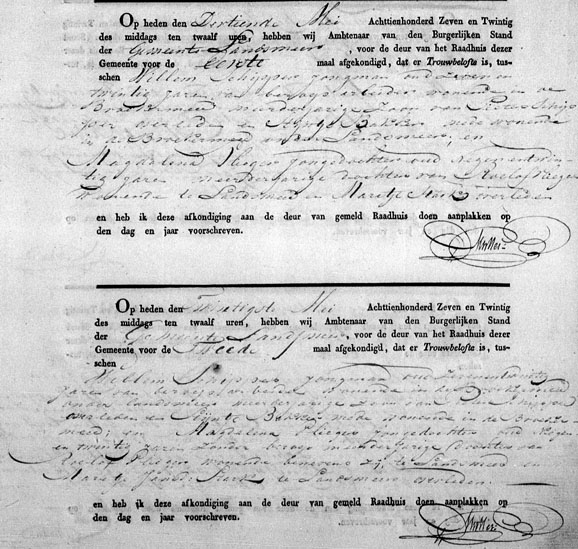 Op heden den Dertiende Mei Achttienhonderd Zeven en Twintig
des middags ten twaalf uren, hebben wij Ambtenaar van den Burgerlijken Stand
der Gemeente Landsmeer, voor de deur van het Raadhuis dezer
Gemeente voor de eerste maal afgekondigd, dat er Trouwbelofte is, tus-
schen Willem Schipper jongman oud zeven en
twintig jaren van beroep arbeider wonende in de
Broekermeer meerderjarige Zoon van Pieter Schip
per overleden en Bakker mede wonende
in de Broekermeer onder Landsmeer, en
Magdalena Vlieger jongedochter oud negen en twin
tig jaren meerderjarige dochter van Roelof Vlieger
wonende te Landsmeer en Maretje Sterk overleden
en heb ik deze afkondiging aan de deur van gemeld Raadhuis doen aanplakken op
den dag en jaar voorschreven.
Op heden den Twintigste Mei Achttienhonderd Zeven en Twintig
des middags ten twaalf uren, hebben wij Ambtenaar van den Burgerlijken Stand
der Gemeente Landsmeer, voor de deur van het Raadhuis dezer
Gemeente voor de Tweede maal afgekondigd, dat er Trouwbelofte is, tus-
schen
Willem Schipper jongman oud Zevenentwintig
jaren van beroep arbeider wonende in de Broekermeer
onder Landsmeer meerderjarige zoon van Pieter Schipper
overleden en Bakker mede wonende in de Broeker
meer; Magdalena Vlieger jongedochter oud negen
en twintig jaren zonder beroep meerderjarige dochter van
Roelof Vlieger wonende te Landsmeer en
Maretje Sterk te Landsmeer overleden
en heb ik deze afkondiging aan de deur van gemeld Raadhuis doen aanplakken op
den dag en jaar voorschreven.